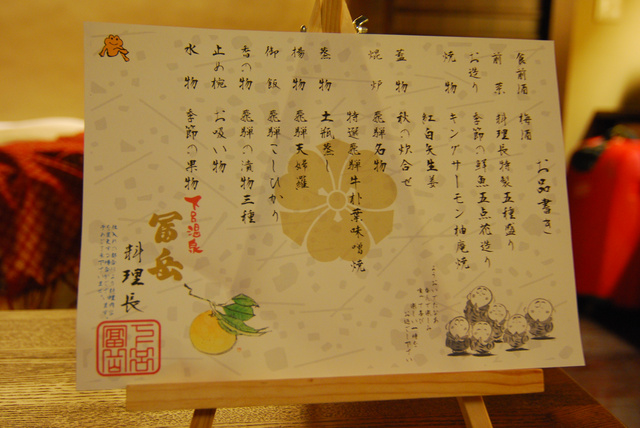 お品書き
食前酒 梅酒
前菜 料理長特製五種盛り
お造り 季節の鮮魚五点花造り
焼物 キングサーモン柚庵焼
紅白矢生姜
蓋物 秋の炊合せ
焜炉 飛騨名物
特選飛騨牛朴葉味噌焼
蒸物 土瓶蒸し
揚物 飛騨天婦羅
御飯 飛騨こしひかり
香の物 飛騨の漬物三種
止め椀 お吸い物
水物 季節の果物
下呂温泉
冨岳
料理長